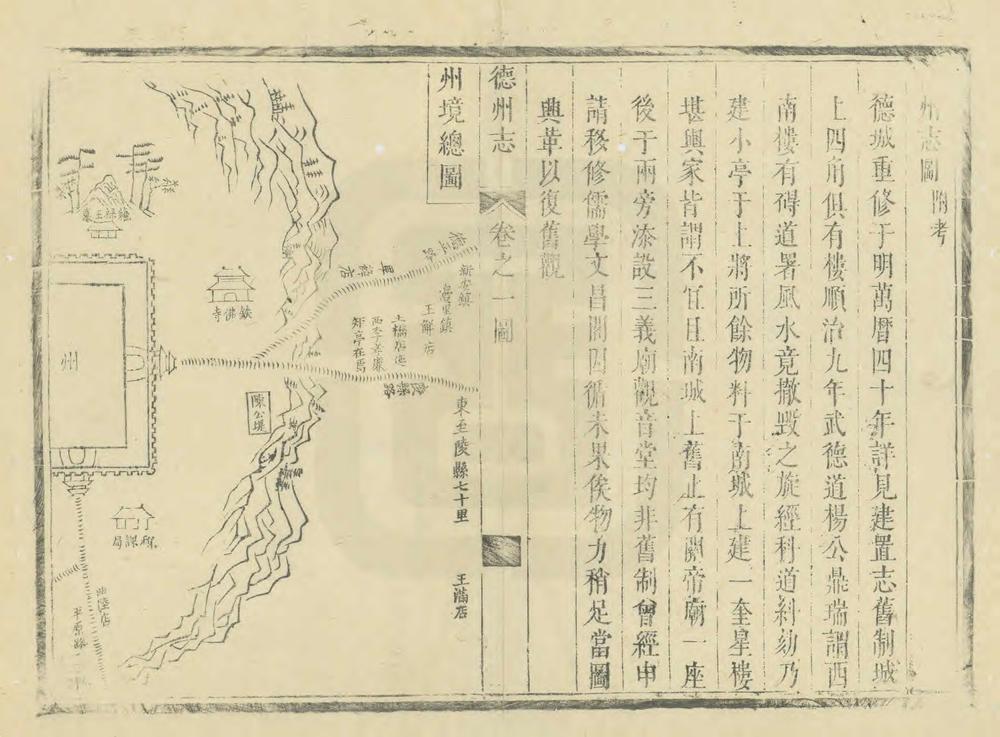 州志圖 附考
德城重修于明萬曆四十年詳見建置志舊制城
上四角俱有樓順治九年武德道楊公鼎瑞謂西
南樓有碍道署風水竟撤毀之旋經科道糾劾乃
建小亭于上將所餘物料于南城上建一奎星樓
堪輿家皆謂不宜且南城上舊止有關帝廟一座
後于兩旁添設三義廟觀音堂均非舊制曾經申
請移修儒學文昌閣因循未果俟物力稍足當圖
興革以復舊觀
德州志
卷之一 圖
州境總圖
新安鎮
王解店
土橋
東至陵縣七十里
王蒲店
鐵佛寺
陳公堤
州
稅課局
曲陸店
平原路